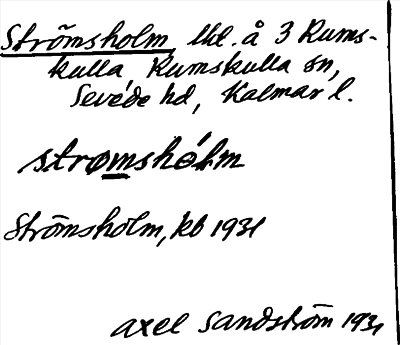 Strömsholm, lhl. å 3 Rums-
kulla, Rumskulla sn,
Sevede hd, Kalmar l.
strømshólm
Strömsholm, kb 1931
axel Sandström 1931